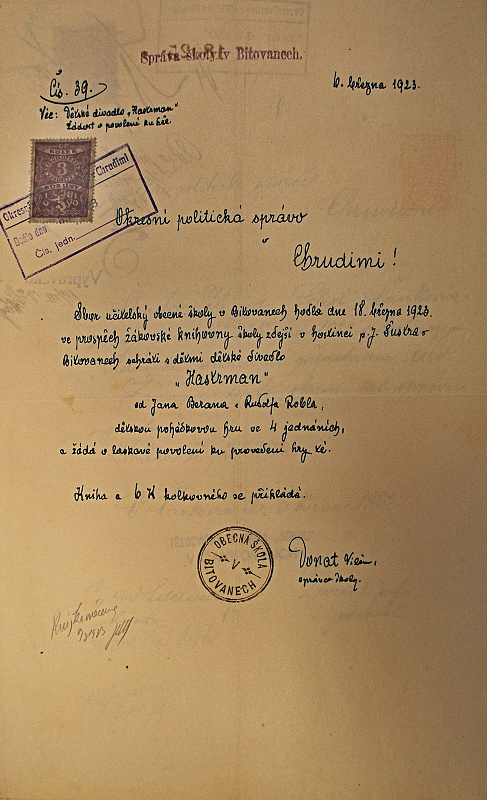 Správa školy v Bítovanech.
Čís. 39.
6. března 1923.
Věc: Dětské divadlo „Hastrman"
Žádost o povolení ku hře.
KOLEK
3
KORUNY
Okresní Chrudimi
Došlo dne
Čís. jedn.
Okresní politická správo
v
Chrudimi!
Sbor učitelský obecné školy v Bítovanech hodlá dne 18. března 1923.
ve prospěch žákovské knihovny školy zdejší v hostinci p. J. Šustra v
Bítovanech sehráti s dětmi dětské divadlo
„Hastrman"
od Jana Berana a Rudolfa Robla,
dětskou pohádkovou hru ve 4 jednáních,
a žádá o laskavé povolení ku provedení hry té.
Kniha a 6 K kolkovného se přikládá.
OBECNÁ ŠKOLA
V
BITOVANECH
Donat Vilém,
správce školy.